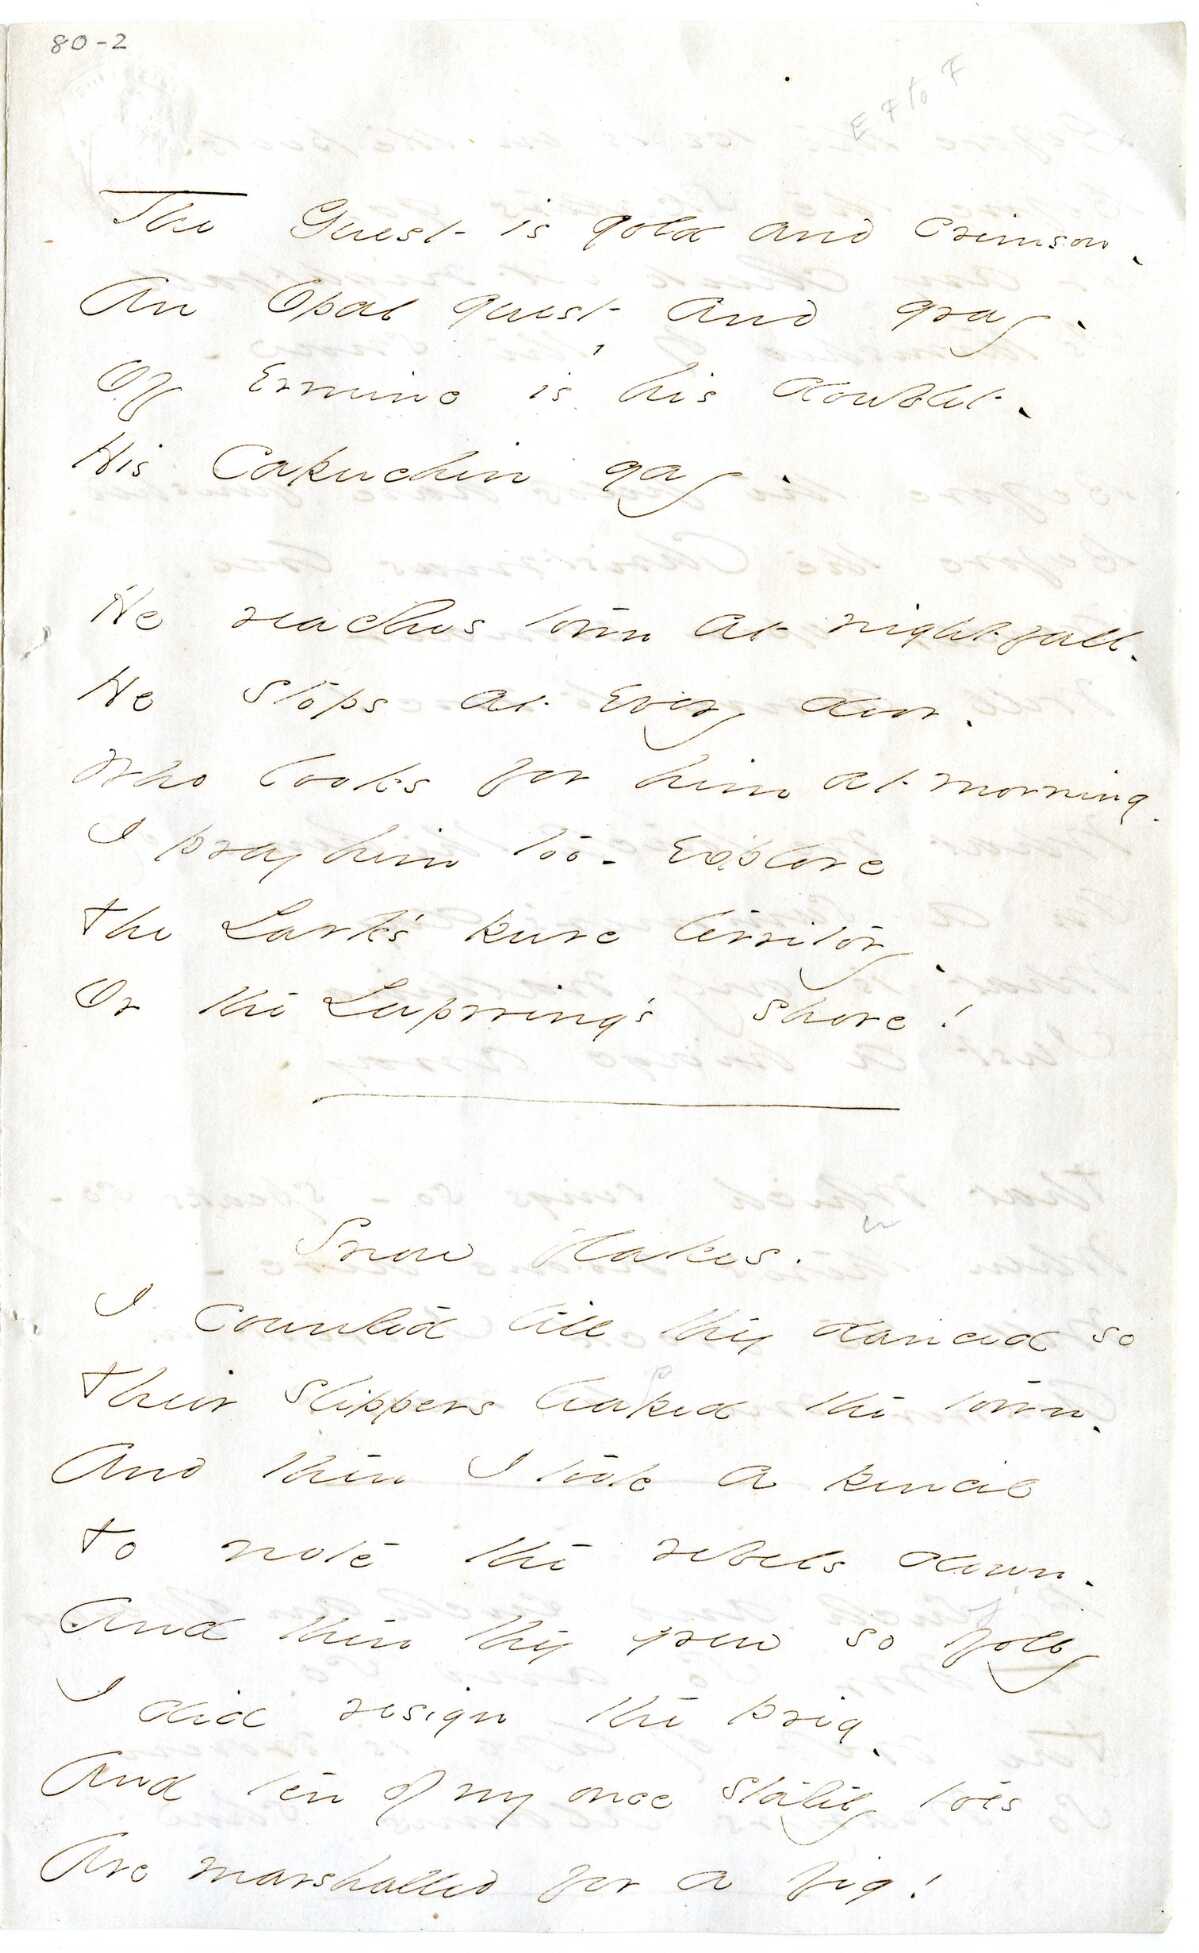 80-2
E F to F
The Guest is gold and Crimson.
An Opal guest and gray.
Of Ermine is his doublet.
His Capuchin gay.
He reaches town at nightfall.
He stops at every door.
Who looks for him at morning.
I pray him too - explore
The Lark's pure territory.
Or the Lapwing's shore!
Snow flakes.
I counted till they danced so
Their slippers leaped the town.
And then I took a pencil
To note the rebels down.
And then they grew so jolly
I did resign the prig.
And ten of my once stately toes
Are marshalled for a jig!